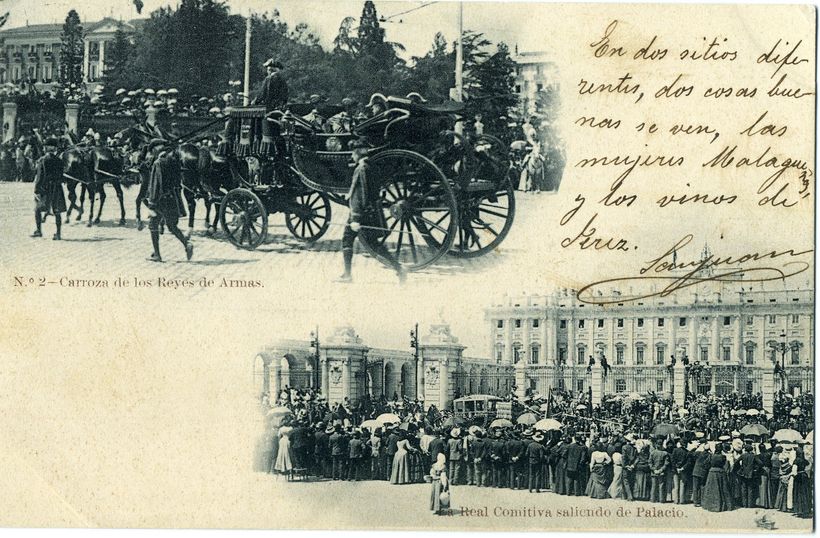 En dos sitios dife
rentes, dos cosas bue
nas se ven, las
mujeres Malagueñas,
y los vinos de
Jerez.
Sanjuan
N.º 2—Carroza de los Reyes de Armas.
La Real Comitiva saliendo de Palacio.